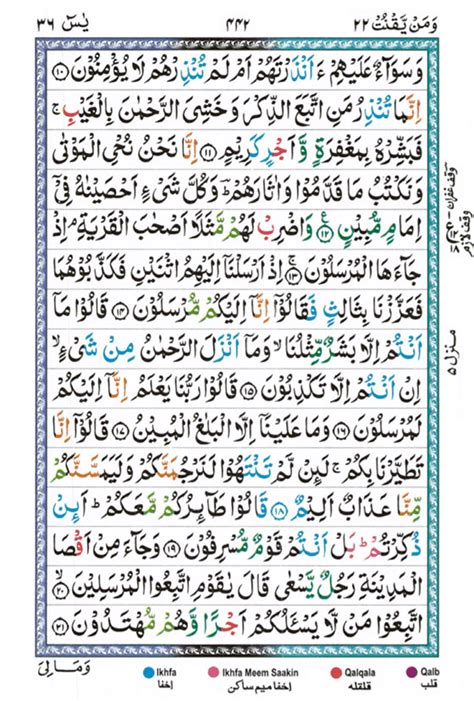 وَمَنْ يَّقْنُتْ ٢٢ ٤٤٢ يٰسٓ ٣٦
وَسَوَآءٌ عَلَيْهِمْ ءَاَنْذَرْتَهُمْ اَمْ لَمْ تُنْذِرْهُمْ لَا يُؤْمِنُوْنَ ۝١٠
اِنَّمَا تُنْذِرُ مَنِ اتَّبَعَ الذِّكْرَ وَخَشِىَ الرَّحْمٰنَ بِالْغَيْبِ ۚ
فَبَشِّرْهُ بِمَغْفِرَةٍ وَّاَجْرٍ كَرِيْمٍ ۝١١ اِنَّا نَحْنُ نُحْىِ الْمَوْتٰى
وَنَكْتُبُ مَا قَدَّمُوْا وَاٰثَارَهُمْ ؕ وَكُلَّ شَىْءٍ اَحْصَيْنٰهُ فِىْۤ
اِمَامٍ مُّبِيْنٍ ۝١٢ وَاضْرِبْ لَهُمْ مَّثَلًا اَصْحٰبَ الْقَرْيَةِ ۘ اِذْ
جَآءَهَا الْمُرْسَلُوْنَ ۝١٣ اِذْ اَرْسَلْنَاۤ اِلَيْهِمُ اثْنَيْنِ فَكَذَّبُوْهُمَا
فَعَزَّزْنَا بِثَالِثٍ فَقَالُوْۤا اِنَّاۤ اِلَيْكُمْ مُّرْسَلُوْنَ ۝١٤ قَالُوْا مَاۤ
اَنْتُمْ اِلَّا بَشَرٌ مِّثْلُنَا ۙ وَمَاۤ اَنْزَلَ الرَّحْمٰنُ مِنْ شَىْءٍ ۙ
اِنْ اَنْتُمْ اِلَّا تَكْذِبُوْنَ ۝١٥ قَالُوْا رَبُّنَا يَعْلَمُ اِنَّاۤ اِلَيْكُمْ
لَمُرْسَلُوْنَ ۝١٦ وَمَا عَلَيْنَاۤ اِلَّا الْبَلٰغُ الْمُبِيْنُ ۝١٧ قَالُوْۤا اِنَّا
تَطَيَّرْنَا بِكُمْ ۚ لَئِنْ لَّمْ تَنْتَهُوْا لَنَرْجُمَنَّكُمْ وَلَيَمَسَّنَّكُمْ
مِّنَّا عَذَابٌ اَلِيْمٌ ۝١٨ قَالُوْا طَآئِرُكُمْ مَّعَكُمْ ؕ اَئِنْ
ذُكِّرْتُمْ ؕ بَلْ اَنْتُمْ قَوْمٌ مُّسْرِفُوْنَ ۝١٩ وَجَآءَ مِنْ اَقْصَا
الْمَدِيْنَةِ رَجُلٌ يَّسْعٰى قَالَ يٰقَوْمِ اتَّبِعُوا الْمُرْسَلِيْنَ ۝٢٠
اتَّبِعُوْا مَنْ لَّا يَسْئَلُكُمْ اَجْرًا وَّهُمْ مُّهْتَدُوْنَ ۝٢١
منزل ٥
وَمَا لِىَ
Ikhfa Ikhfa Meem Saakin Qalqala Qalb
اخفا اخفا میم ساکن قلقلہ قلب